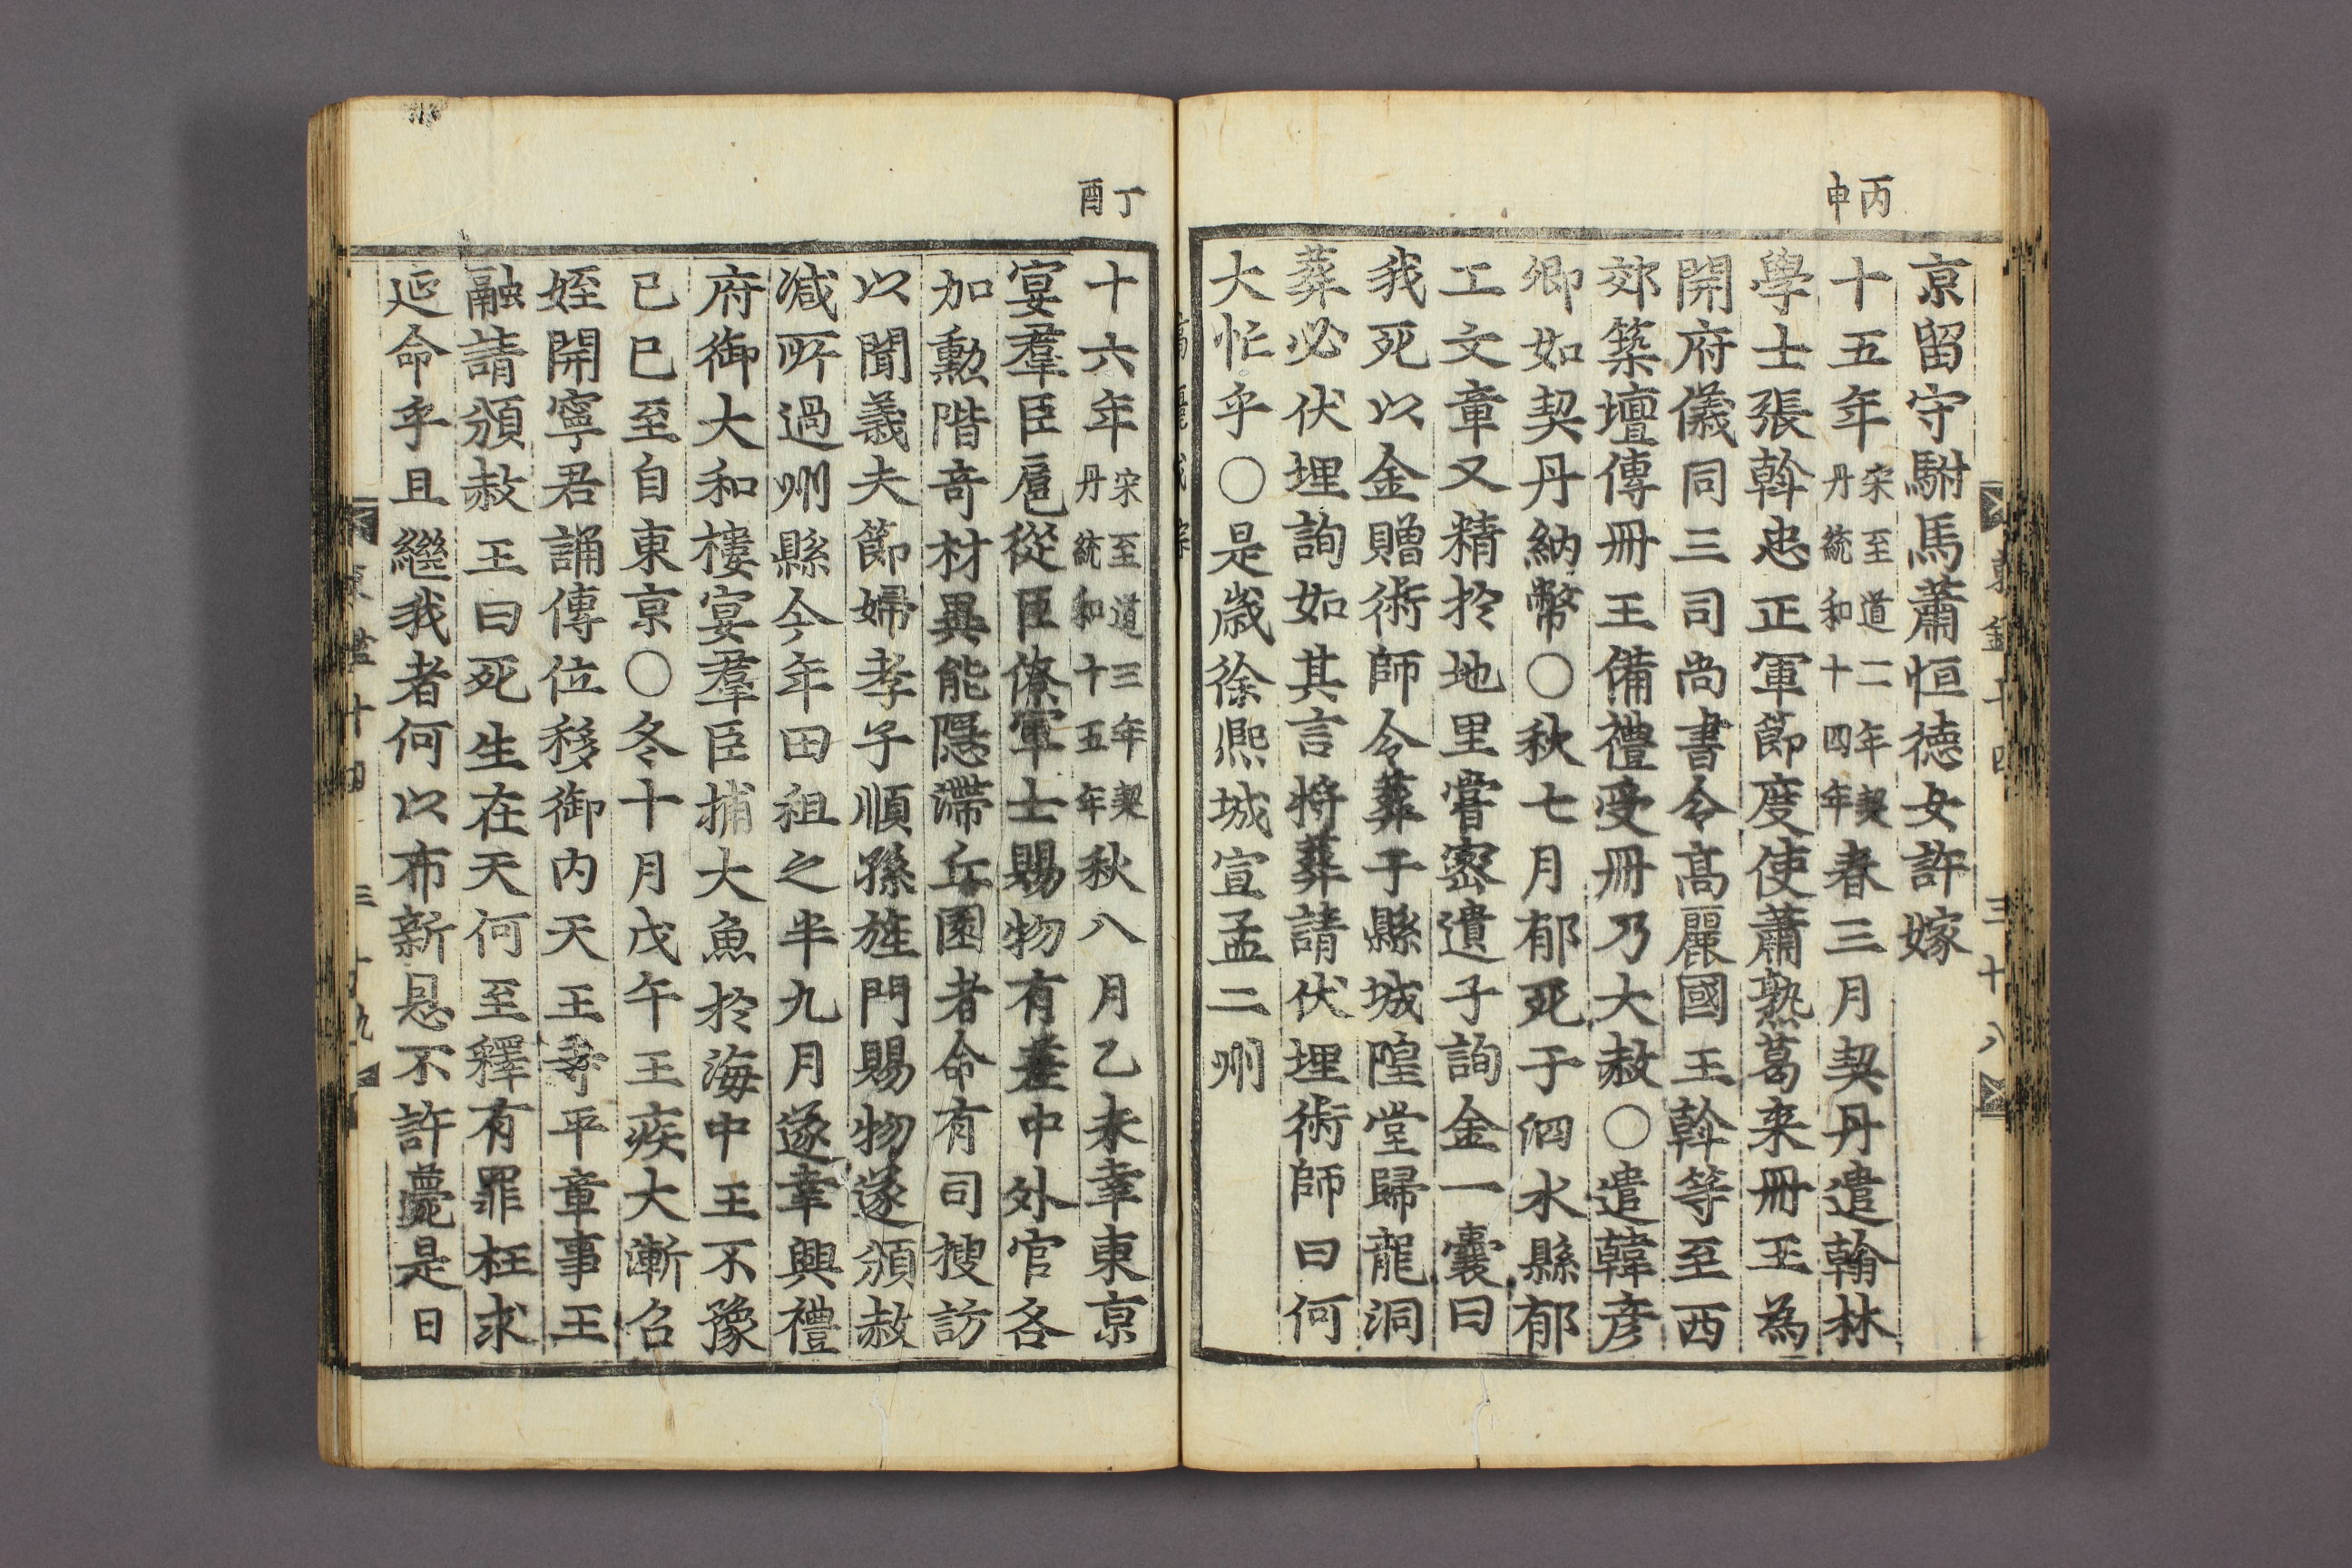 丙申
京留守駙馬蕭恒德女許嫁
十五年宋至道二年契丹統和十四年春三月契丹遣翰林
學士張幹忠正軍節度使蕭熟葛来冊王為
開府儀同三司尚書令髙麗國王幹等至西
郊築壇傳冊王備禮受冊乃大赦○遣韓彦
卿如契丹納幣○秋七月郁死于泗水縣郁
工文章又精於地里甞密遺子詢金一囊曰
我死以金贈術師令葬于縣城隍堂歸龍洞
葬必伏埋詢如其言将葬請伏埋術師曰何
大忙乎○是歲徐熙城宣孟二州
三十八
丁酉
十六年宋至道三年契丹統和十五年秋八月乙未幸東京
宴羣臣扈從臣僚軍士賜物有差中外官各
加勳階竒材異能隱滯丘園者命有司搜訪
以聞義夫節婦孝子順孫旌門賜物遂頒赦
减所過州縣今年田祖之半九月遂幸興禮
府御大和樓宴羣臣捕大魚於海中王不豫
己巳至自東京○冬十月戊午王疾大漸召
姪開寧君誦傳位移御内天王寺平章事王
融請頒赦王曰死生在天何至釋有罪枉求
延命乎且繼我者何以布新恩不許薨是日
東鑑十四